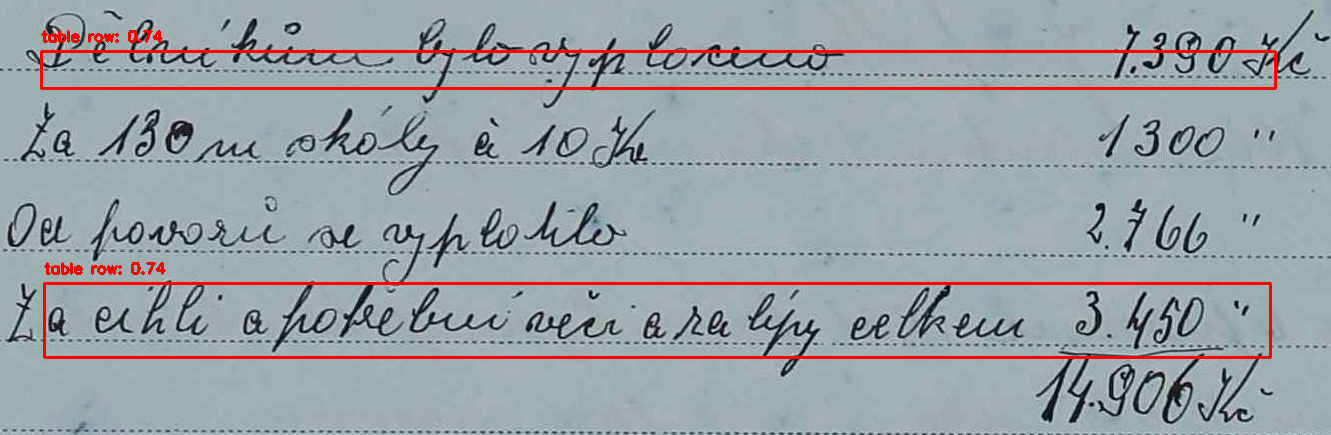 table row: 0.74
Dělníkům bylo vyplaceno 7.390 Kč
Za 130 m skály à 10 Kč
1300 "
Od povozů se vyplatilo 2.766 "
table row: 0.74
Za cihli a potřební věci a za lípy celkem 3.450 "
14.906 Kč